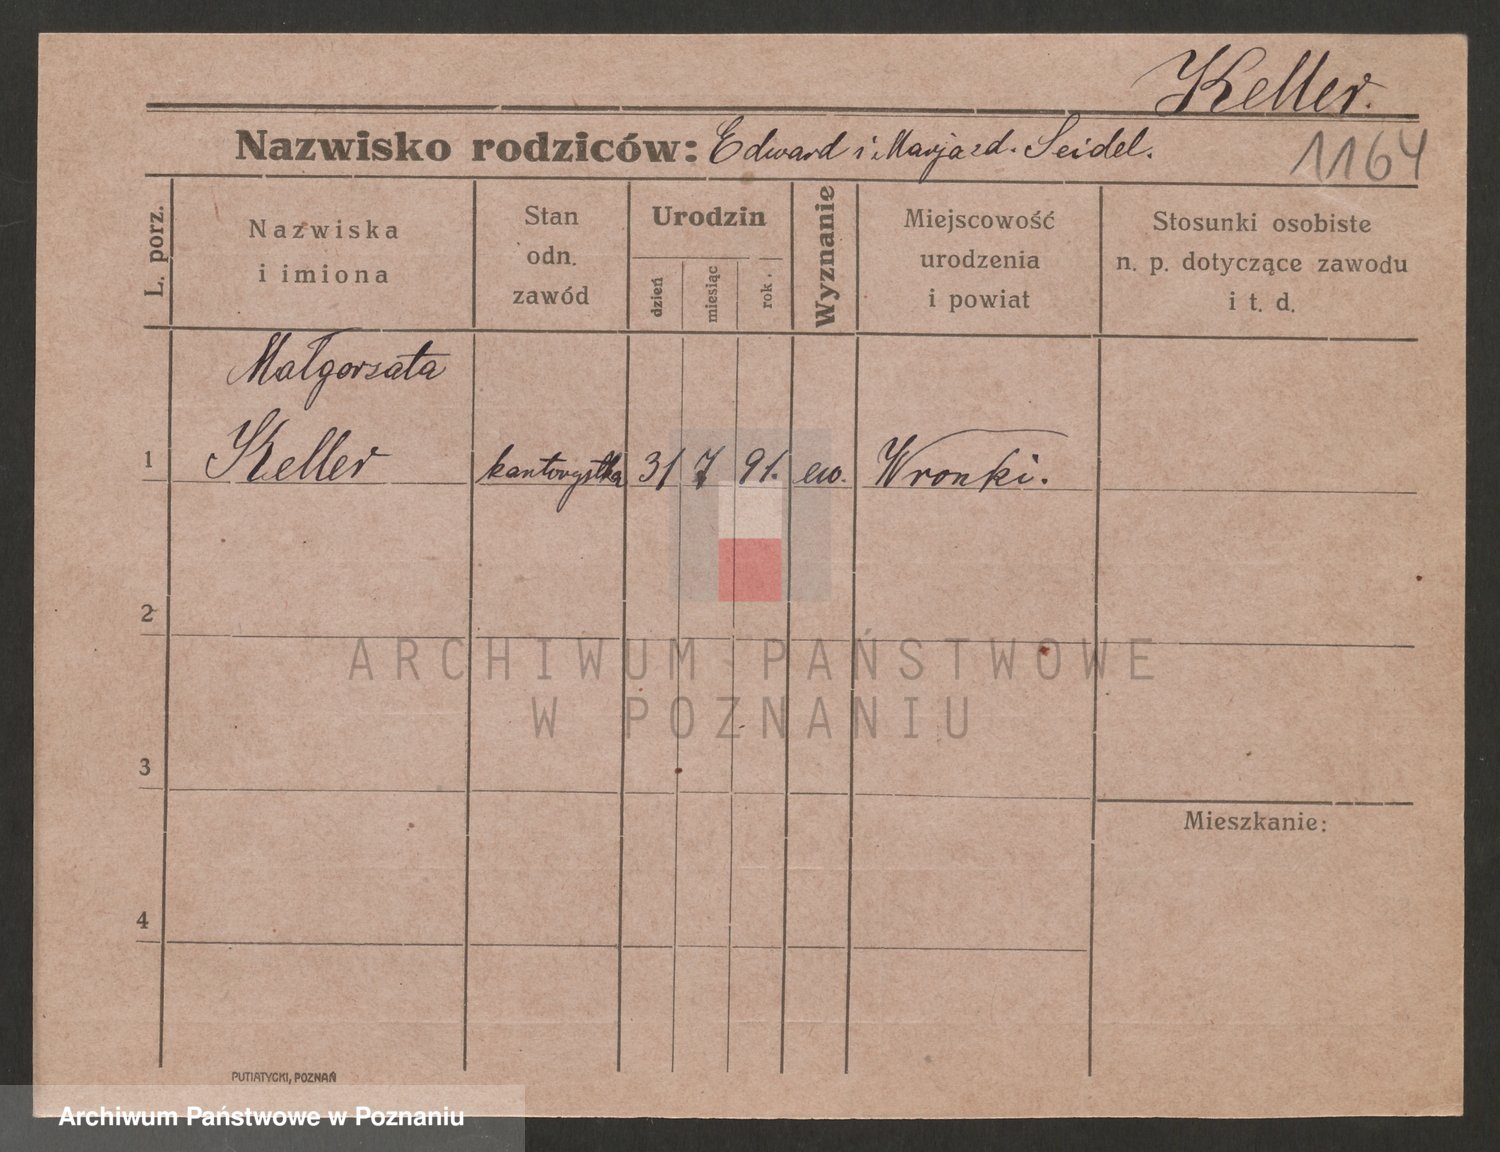 Keller.
Nazwisko rodziców: Edward i Marja zd. Seidel.
1164
L. porz.
Nazwiska
i imiona
Stan
odn.
zawód
Urodzin
dzień
miesiąc
rok.
Wyznanie
Miejscowość
urodzenia
i powiat
Stosunki osobiste
n. p. dotyczące zawodu
i t. d.
Małgorzata
1 Keller kantorystka 31 7 91. ew. Wronki.
2
ARCHIWUM PAŃSTWOWE
W POZNANIU
3
Mieszkanie:
4
PUTIATYCKI, POZNAŃ
Archiwum Państwowe w Poznaniu